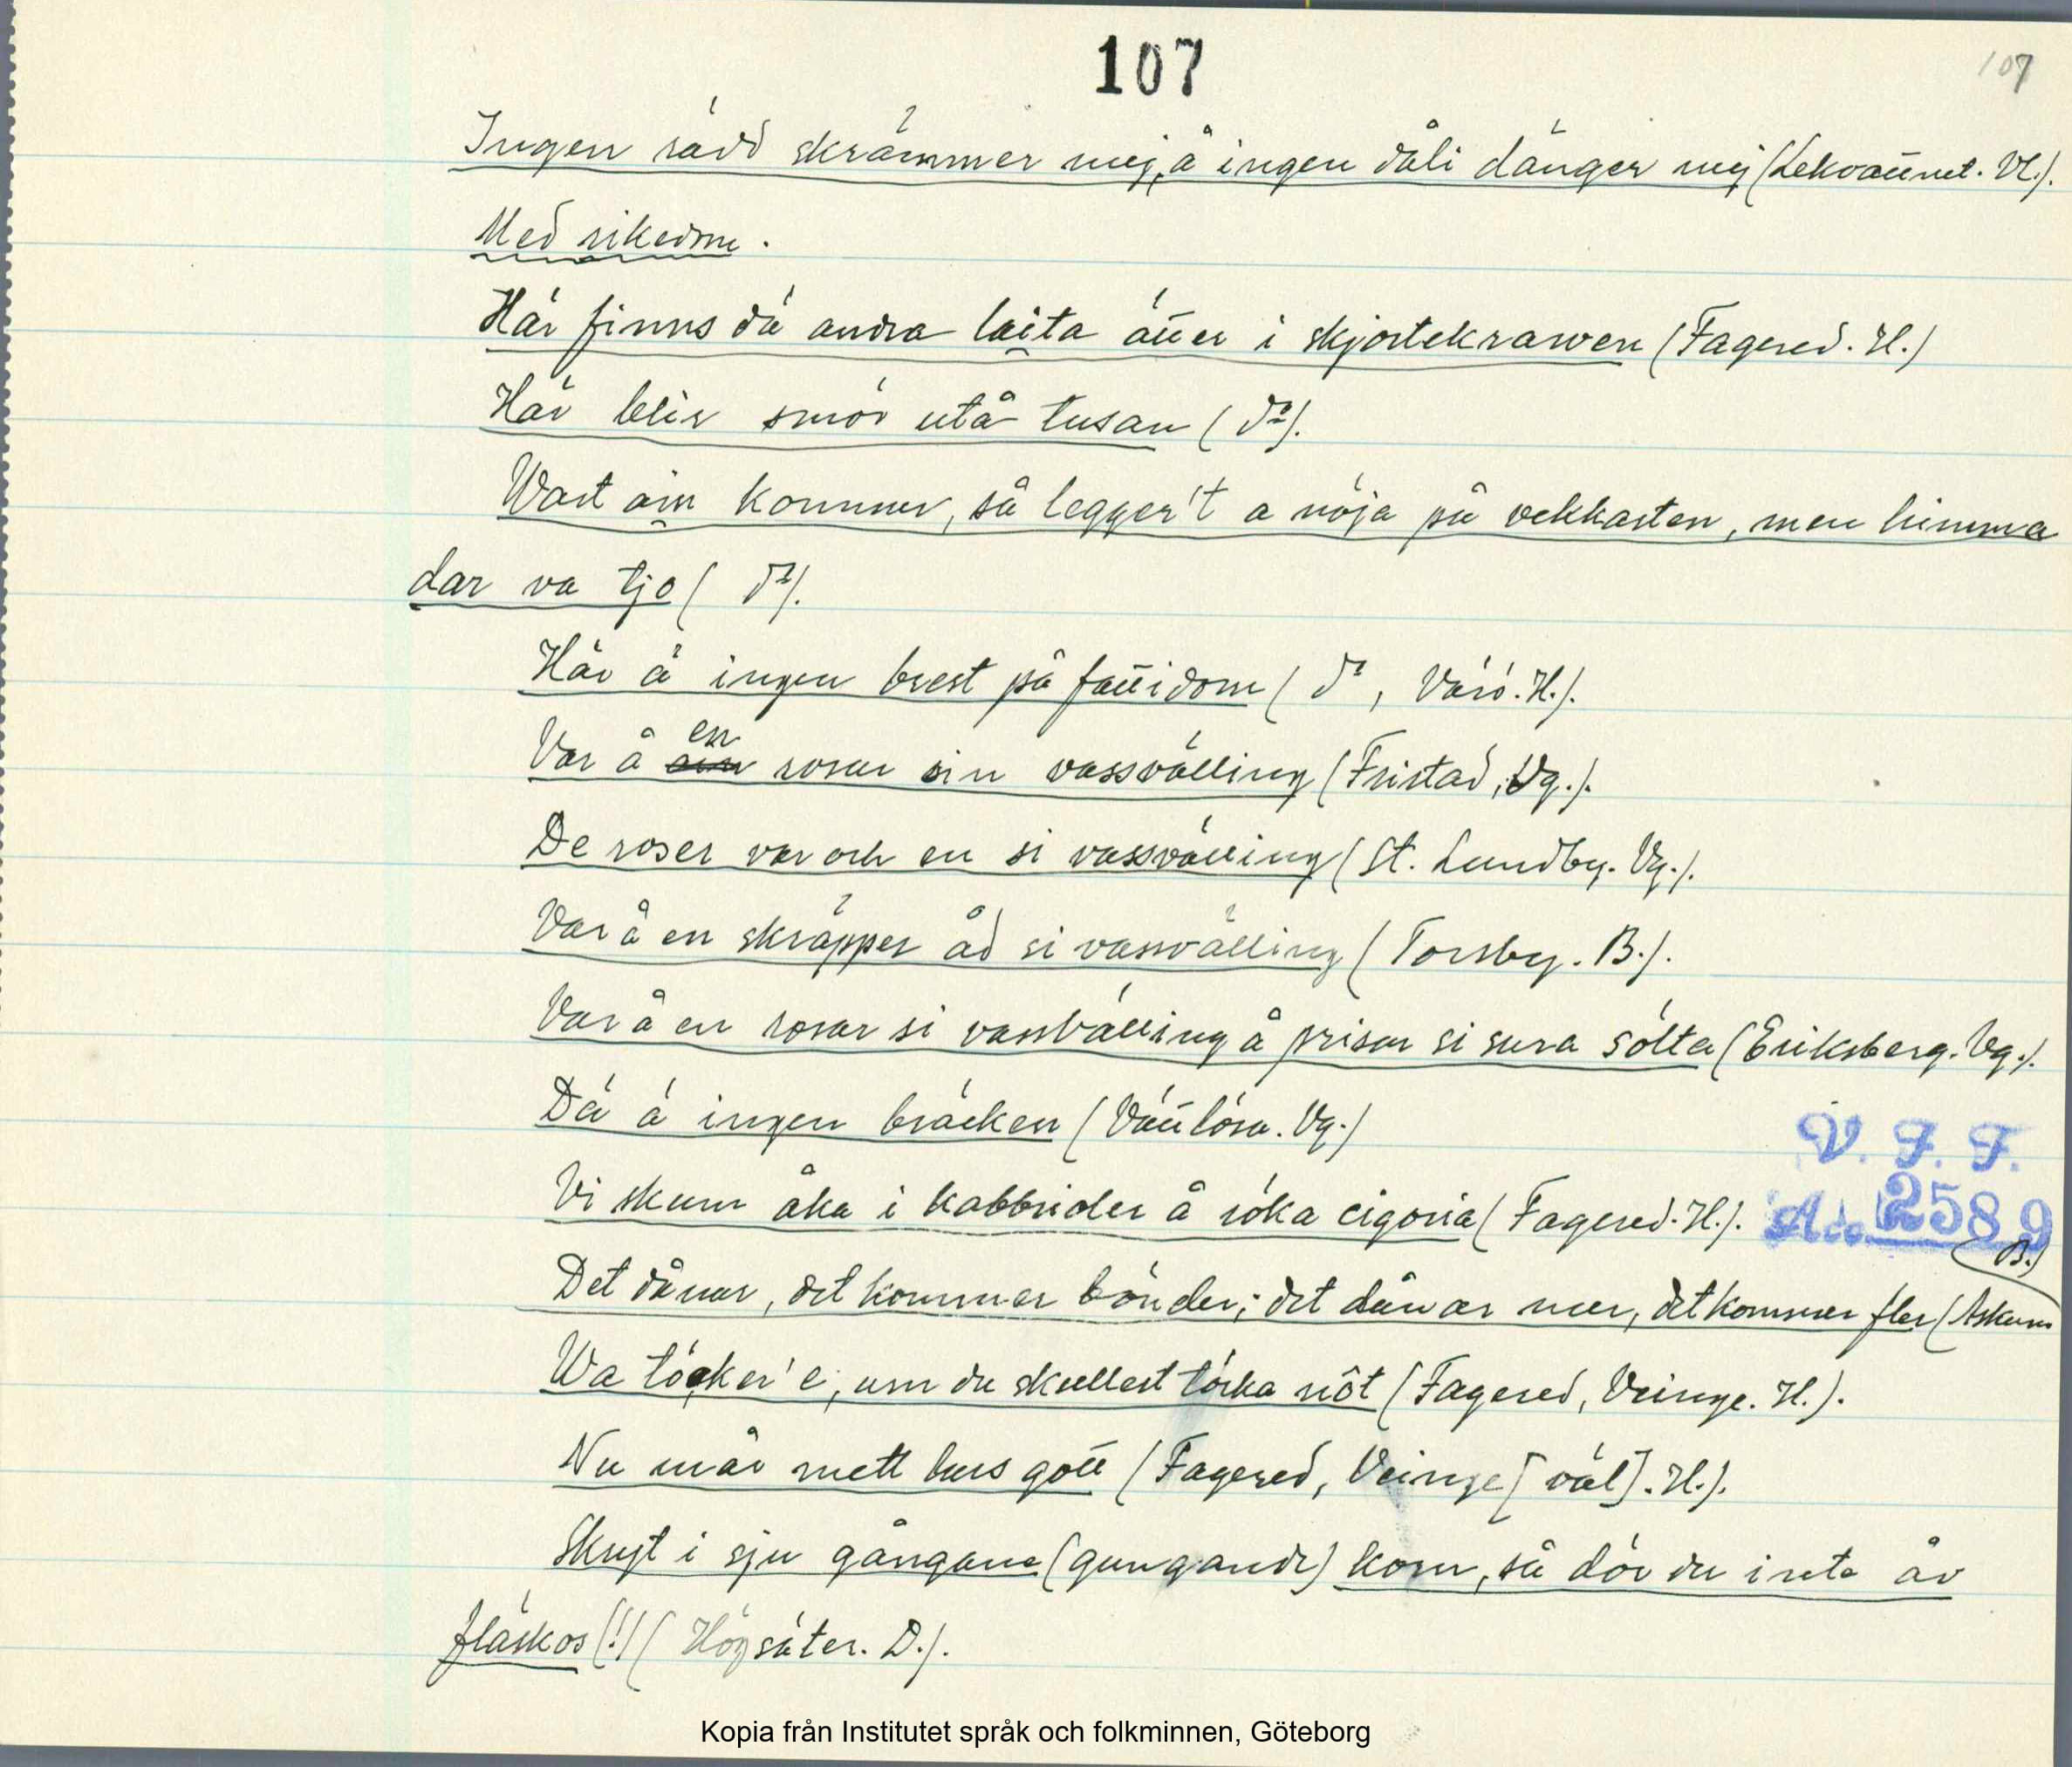 107
107
Ingen rädd skrämmer mej, å ingen dåli dänger mej (Lekvattnet. Vl.).
Med rikedom.
Här finns då andra laita äller i skjortekrawen (Fagered. H.)
Här blir smör utå tusan (do).
Wart ain kommer, så legger't a nöja på vekkasten, men himma
dar va tjo ( do).
Här ä ingen brest på fallidom ( do, Värö. H.).
Var å en rosar sin vassvälling (Fristad, Vg.).
De roser var och en si vassvälling (St. Lundby. Vg.).
Var å en skräpper åd si vassvälling (Torsby. B.).
Var å en rosar si vassvälling å prisar si sura sölta (Eriksberg. Vg.).
Dä ä ingen bräcken (Vällösa. Vg.)
V. F. F.
Vi skum åka i kabbrioler å röka cigoria (Fagered. H.).
Acc. 2589
B.)
Det dånar, det kommer bönder; det dånar mer, det kommer fler (Askum
Wa töcker'e, um du skullest törka nöt (Fagered, Veinge. H.).
Nu mår mett hus gott (Fagered, Veinge [väl]. H.).
Skryt i sju gångane (gungande) korn, så dör du inte åv
fläskos (!) (Högsäter. D.).
Kopia från Institutet språk och folkminnen, Göteborg